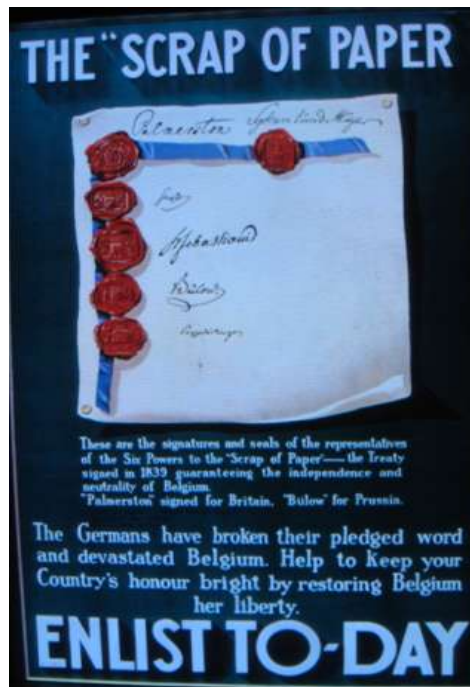 THE "SCRAP OF PAPER
Palmerston
Bülow
These are the signatures and seals of the representatives
of the Six Powers to the "Scrap of Paper"— the Treaty
signed in 1839 guaranteeing the independence and
neutrality of Belgium.
"Palmerston" signed for Britain, "Bülow" for Prussia.
The Germans have broken their pledged word
and devastated Belgium. Help to keep your
Country's honour bright by restoring Belgium
her liberty.
ENLIST TO-DAY